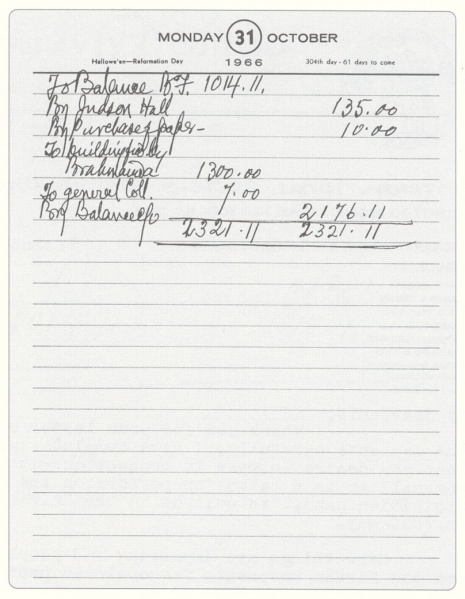 MONDAY 31 OCTOBER
Hallowe'en—Reformation Day 1966 304th day - 61 days to come
To Balance B.F. 1014.11.
By Judson Hall 135.00
By Purchase of paper — 10.00
To building fund by
Brahmananda 1300.00
To general Coll. 7.00
By Balance c/o 2176.11
2321.11 2321.11